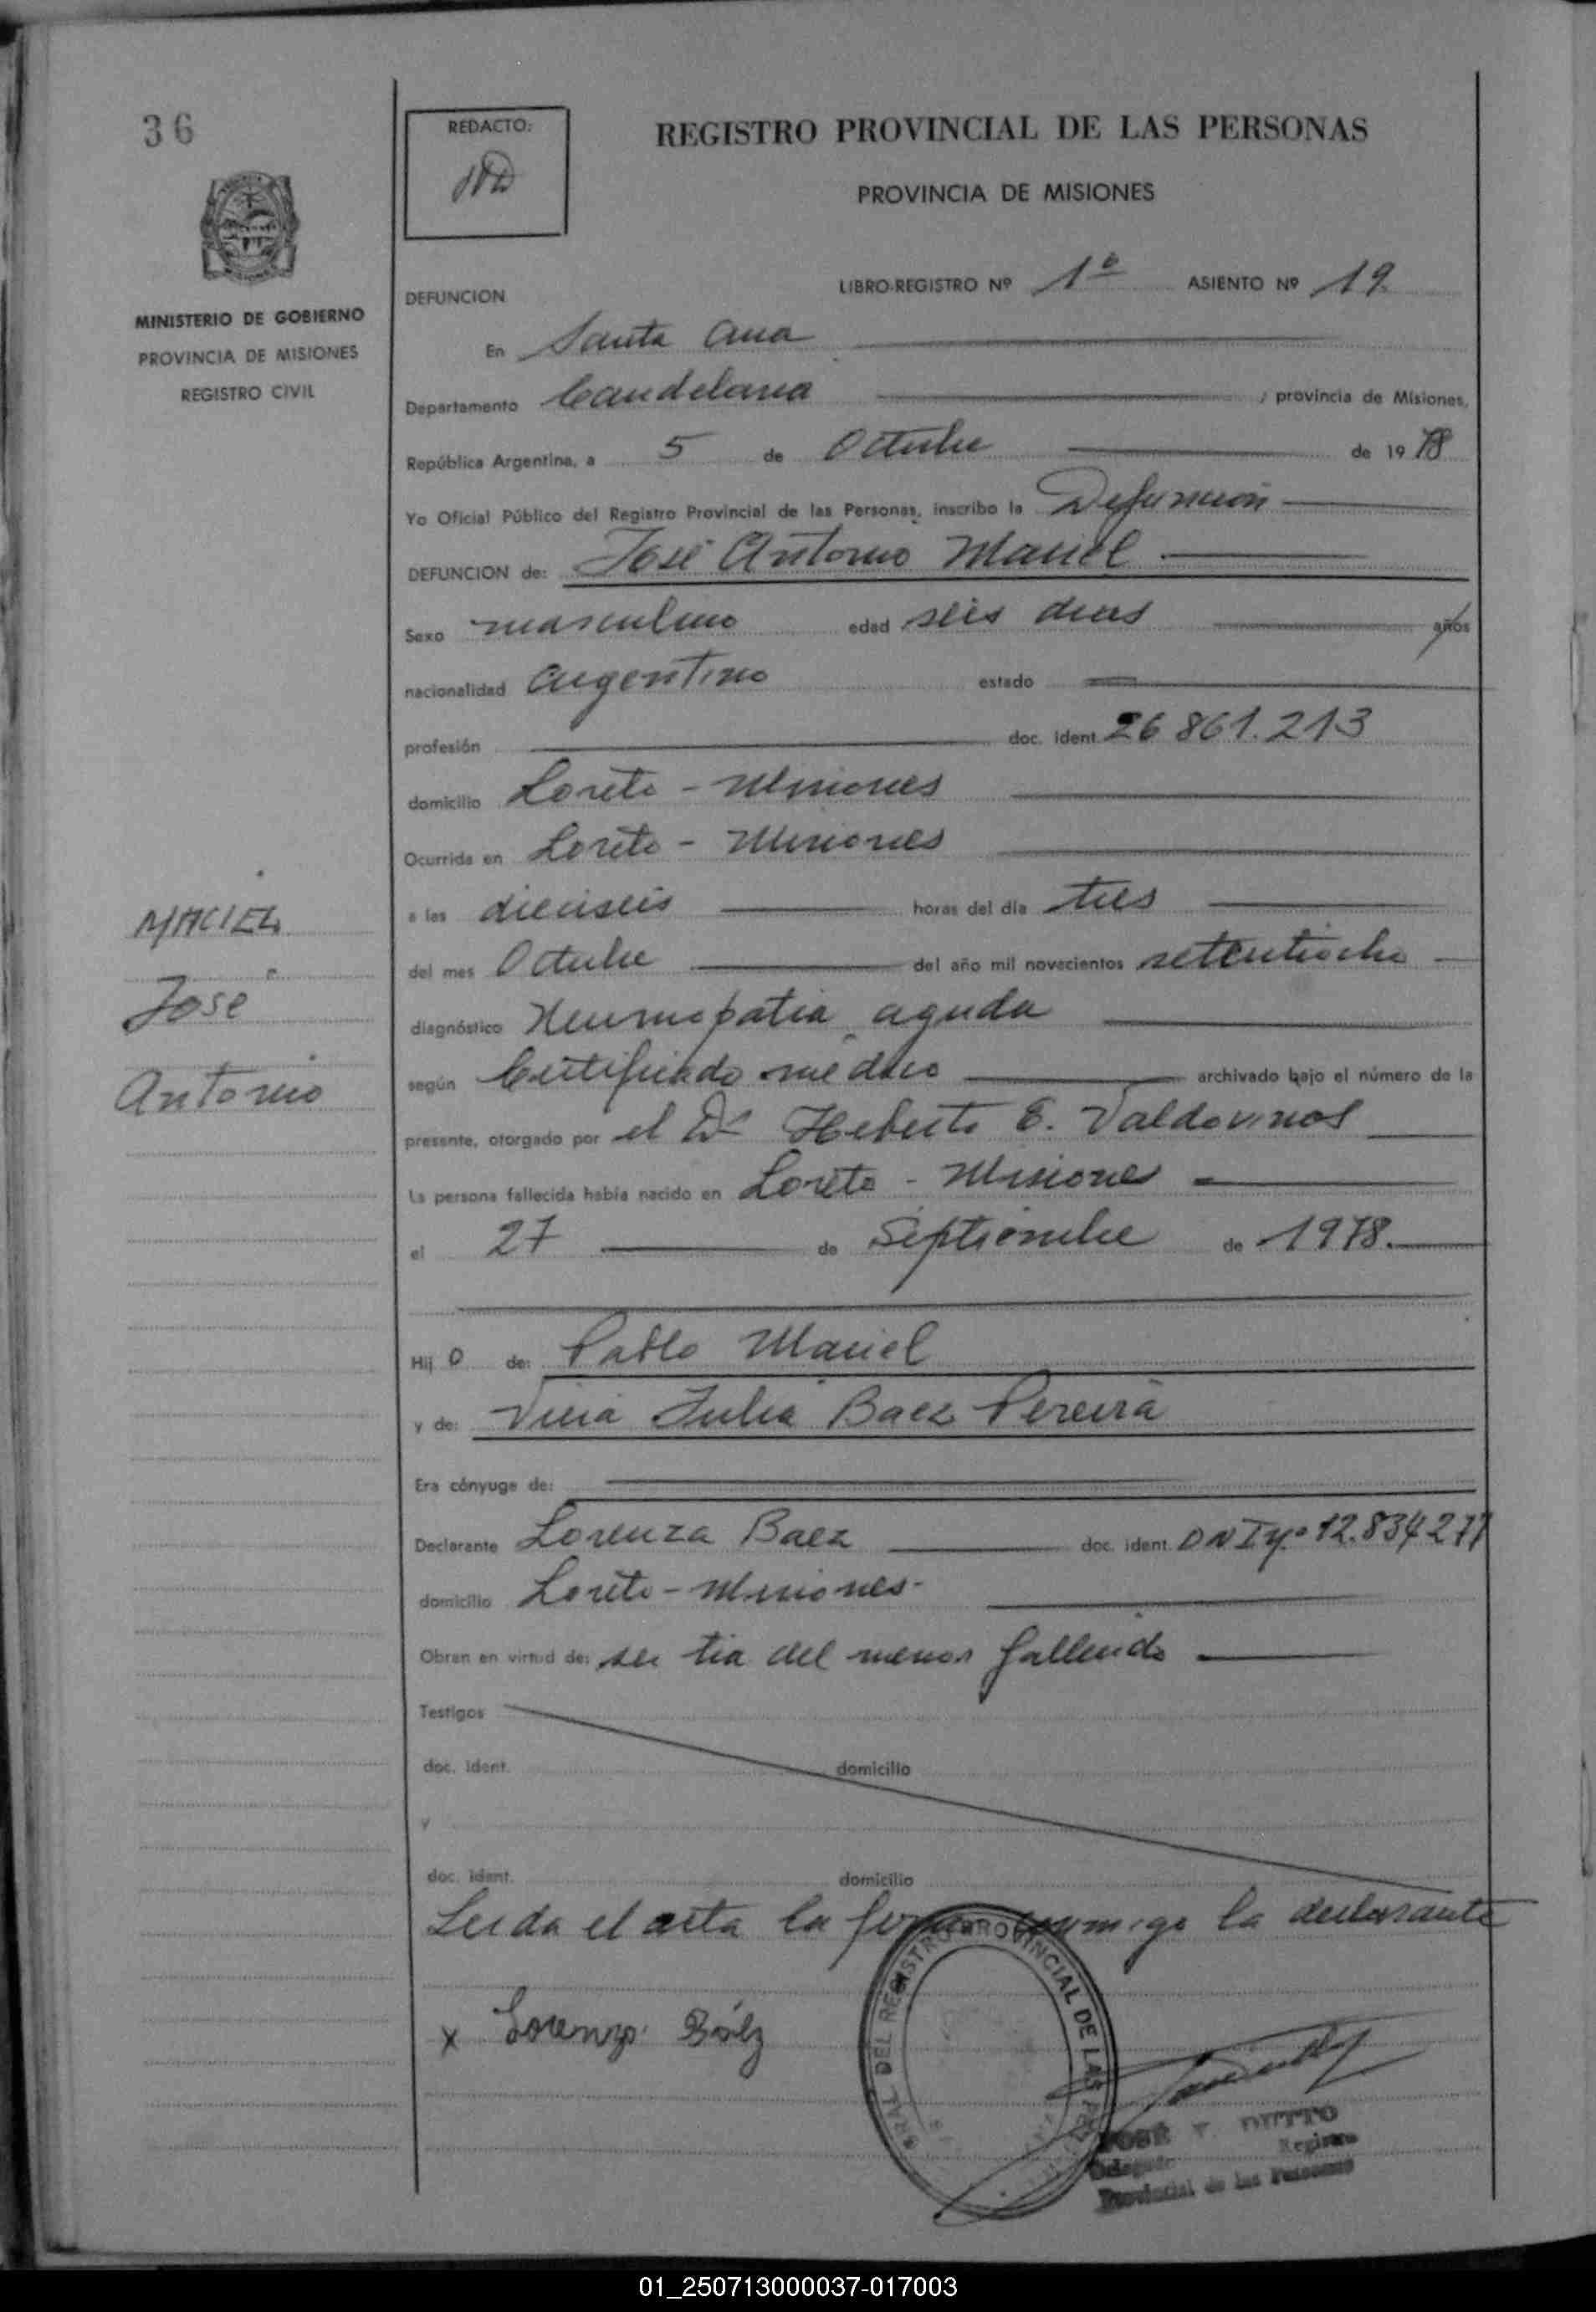 36
REDACTO:
REGISTRO PROVINCIAL DE LAS PERSONAS
PROVINCIA DE MISIONES
MINISTERIO DE GOBIERNO
PROVINCIA DE MISIONES
REGISTRO CIVIL
LIBRO-REGISTRO Nº 1º ASIENTO Nº 19
DEFUNCION
En Santa Ana
Departamento Candelaria, provincia de Misiones,
República Argentina, a 5 de Octubre de 1978
Yo Oficial Público del Registro Provincial de las Personas, inscribo la Defunción
DEFUNCION de: José Antonio Maciel
Sexo masculino edad seis dias años
nacionalidad argentino estado
profesión doc. ident. 26 861.213
domicilio Loreto - Misiones
Ocurrida en Loreto - Misiones
a las dieciseis horas del día tres
del mes Octubre del año mil novecientos setentiocho
diagnóstico Neumopatia aguda
según Certificado médico archivado bajo el número de la
presente, otorgado por el Dr Heberto E. Valdovinos
La persona fallecida había nacido en Loreto - Misiones
el 27 de Septiembre de 1978.
Hij o de: Pablo Maciel
y de: Julia Baez Pereira
Era cónyuge de:
Declarante Lorenza Baez doc. ident. DNI Nº 12.834277
domicilio Loreto - Misiones-
Obran en virtud de: ser tia del menor fallecido
Testigos
doc. ident. domicilio
y
doc. ident. domicilio
Leida el acta la firma conmigo la declarante
x Lorenza Báez
MACIEL
José
Antonio
GRAL DEL REGISTRO PROVINCIAL DE LAS
JOSÉ DUTTO
Delegado Registro
Provincial de las Personas
01_250713000037-017003